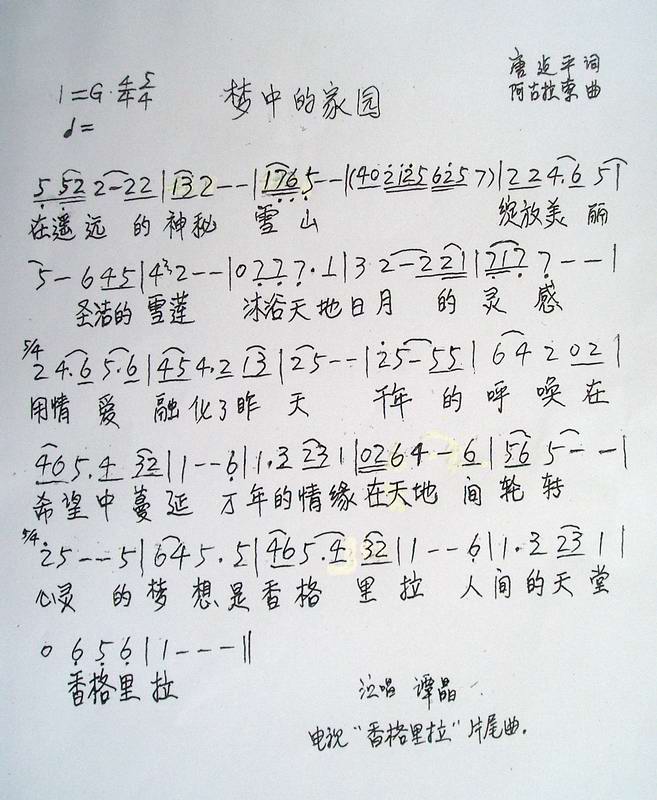 1=G 4/4 5/4
♩=
梦中的家园
唐 平 词
阿古拉泰 曲
5 52 2-22|132--|1765--|(402125 6257)|224.6 51|
在遥远 的神秘 雪山 绽放美丽
5-645|4³2--|0777.1|32-221|2177--|
圣洁的雪莲 沐浴天地日月 的灵感
5/4
24.65.6|454.213|25--|25-55|64202|
用情爱 融化了昨天 千年的呼唤在
465.432|1--6|1.3231|0264-6|565--|
希望中蔓延 万年的情缘在天地间轮转
5/4
25--5|645.5|465.432|1--6|1.3231|
心灵的梦想是香格里拉 人间的天堂
0656|1---‖
香格里拉
演唱 谭晶
电视"香格里拉"片尾曲.